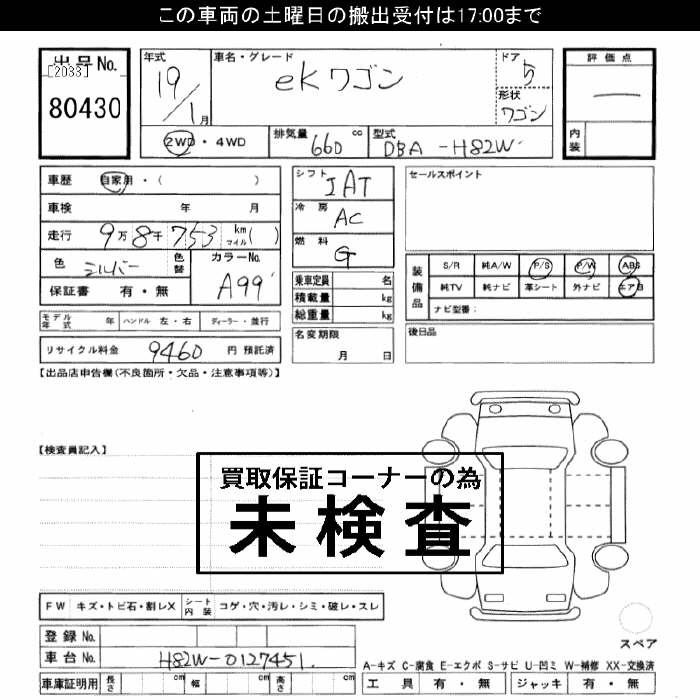 この車両の土曜日の搬出受付は17:00まで
出品No.
[2033]
80430
年式 車名・グレード ドア
19/1月 ekワゴン 5
形状
ワゴン
評価点
—
内装
2WD・4WD 排気量 660 cc 型式 DBA-H82W
車歴 自家用・( )
車検 年 月
走行 9万8千753 km マイル( )
色 シルバー 色替 カラーNo. A99
保証書 有・無
モデル年式 年 ハンドル 左・右 ディーラー・並行
リサイクル料金 9460 円 預託済
シフト IAT
冷房 AC
燃料 G
乗車定員 名
積載量 kg
総重量 kg
名変期限
月 日
セールスポイント
装備品
S/R 純A/W P/S P/W ABS
純TV 純ナビ 革シート 外ナビ エアB
ナビ型番:
後日品
【出品店申告欄(不良箇所・欠品・注意事項等)】
【検査員記入】
買取保証コーナーの為
未検査
FW キズ・トビ石・割レX シート内装 コゲ・穴・汚レ・シミ・破レ・スレ
登録No.
車台No. H82W-0127451
車庫証明用 長さ cm 幅 cm 高さ cm
スペア
A-キズ C-腐食 E-エクボ S-サビ U-凹ミ W-補修 XX-交換済
工具 有・無 ジャッキ 有・無